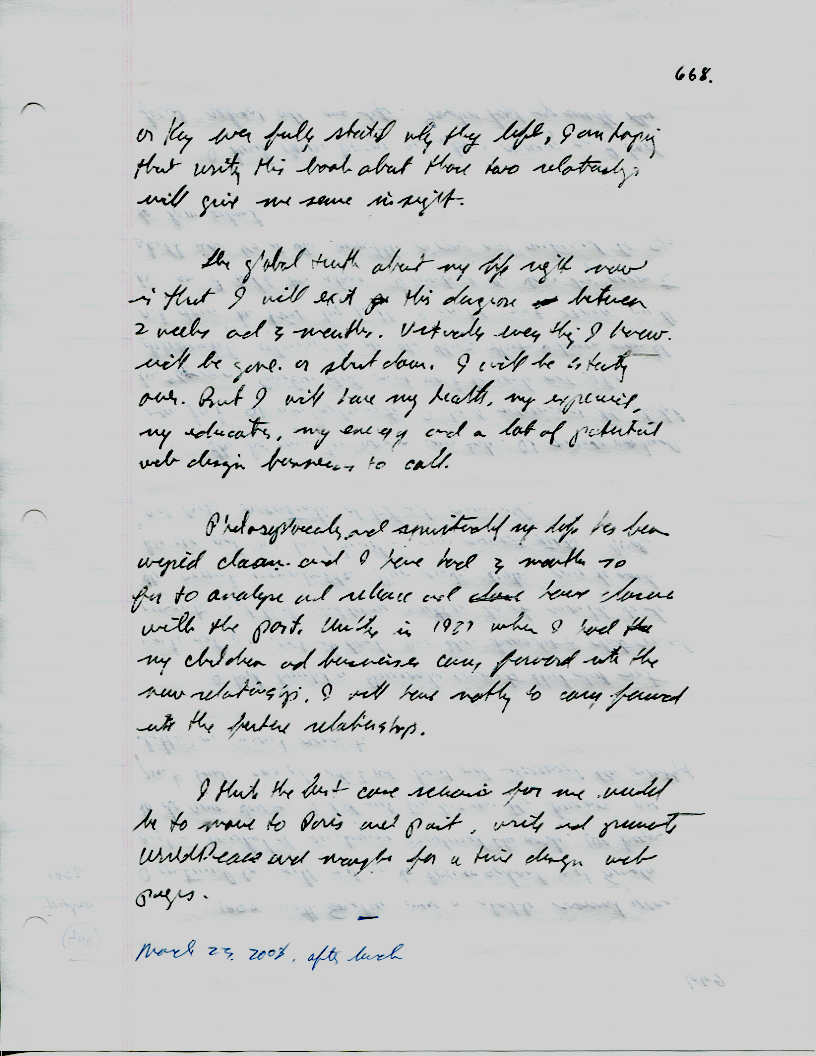 668.
or Kay ever fully stated why they left, I am hoping
that writing this book about those two relationships
will give me some insight.
The global truth about my life right now
is that I will exit this between
2 weeks and 3 months. Virtually everything I know
will be gone or shut down. I will be
over. But I will have my health, my experience,
my education, my energy and a lot of potential
web design businesses to call.
Philosophically and spiritually my life has been
wiped clean and I have had 3 months so
far to analyze and release and have closure
with the past. Unlike in 19 when I had
my children and businesses carry forward into the
new relationship. I will have nothing to carry forward
into the future relationship.
I think the best case scenario for me would
be to move to Paris and paint, write and promote
WorldPeace and maybe for a time design web
pages.
March 23, 2008, after lunch